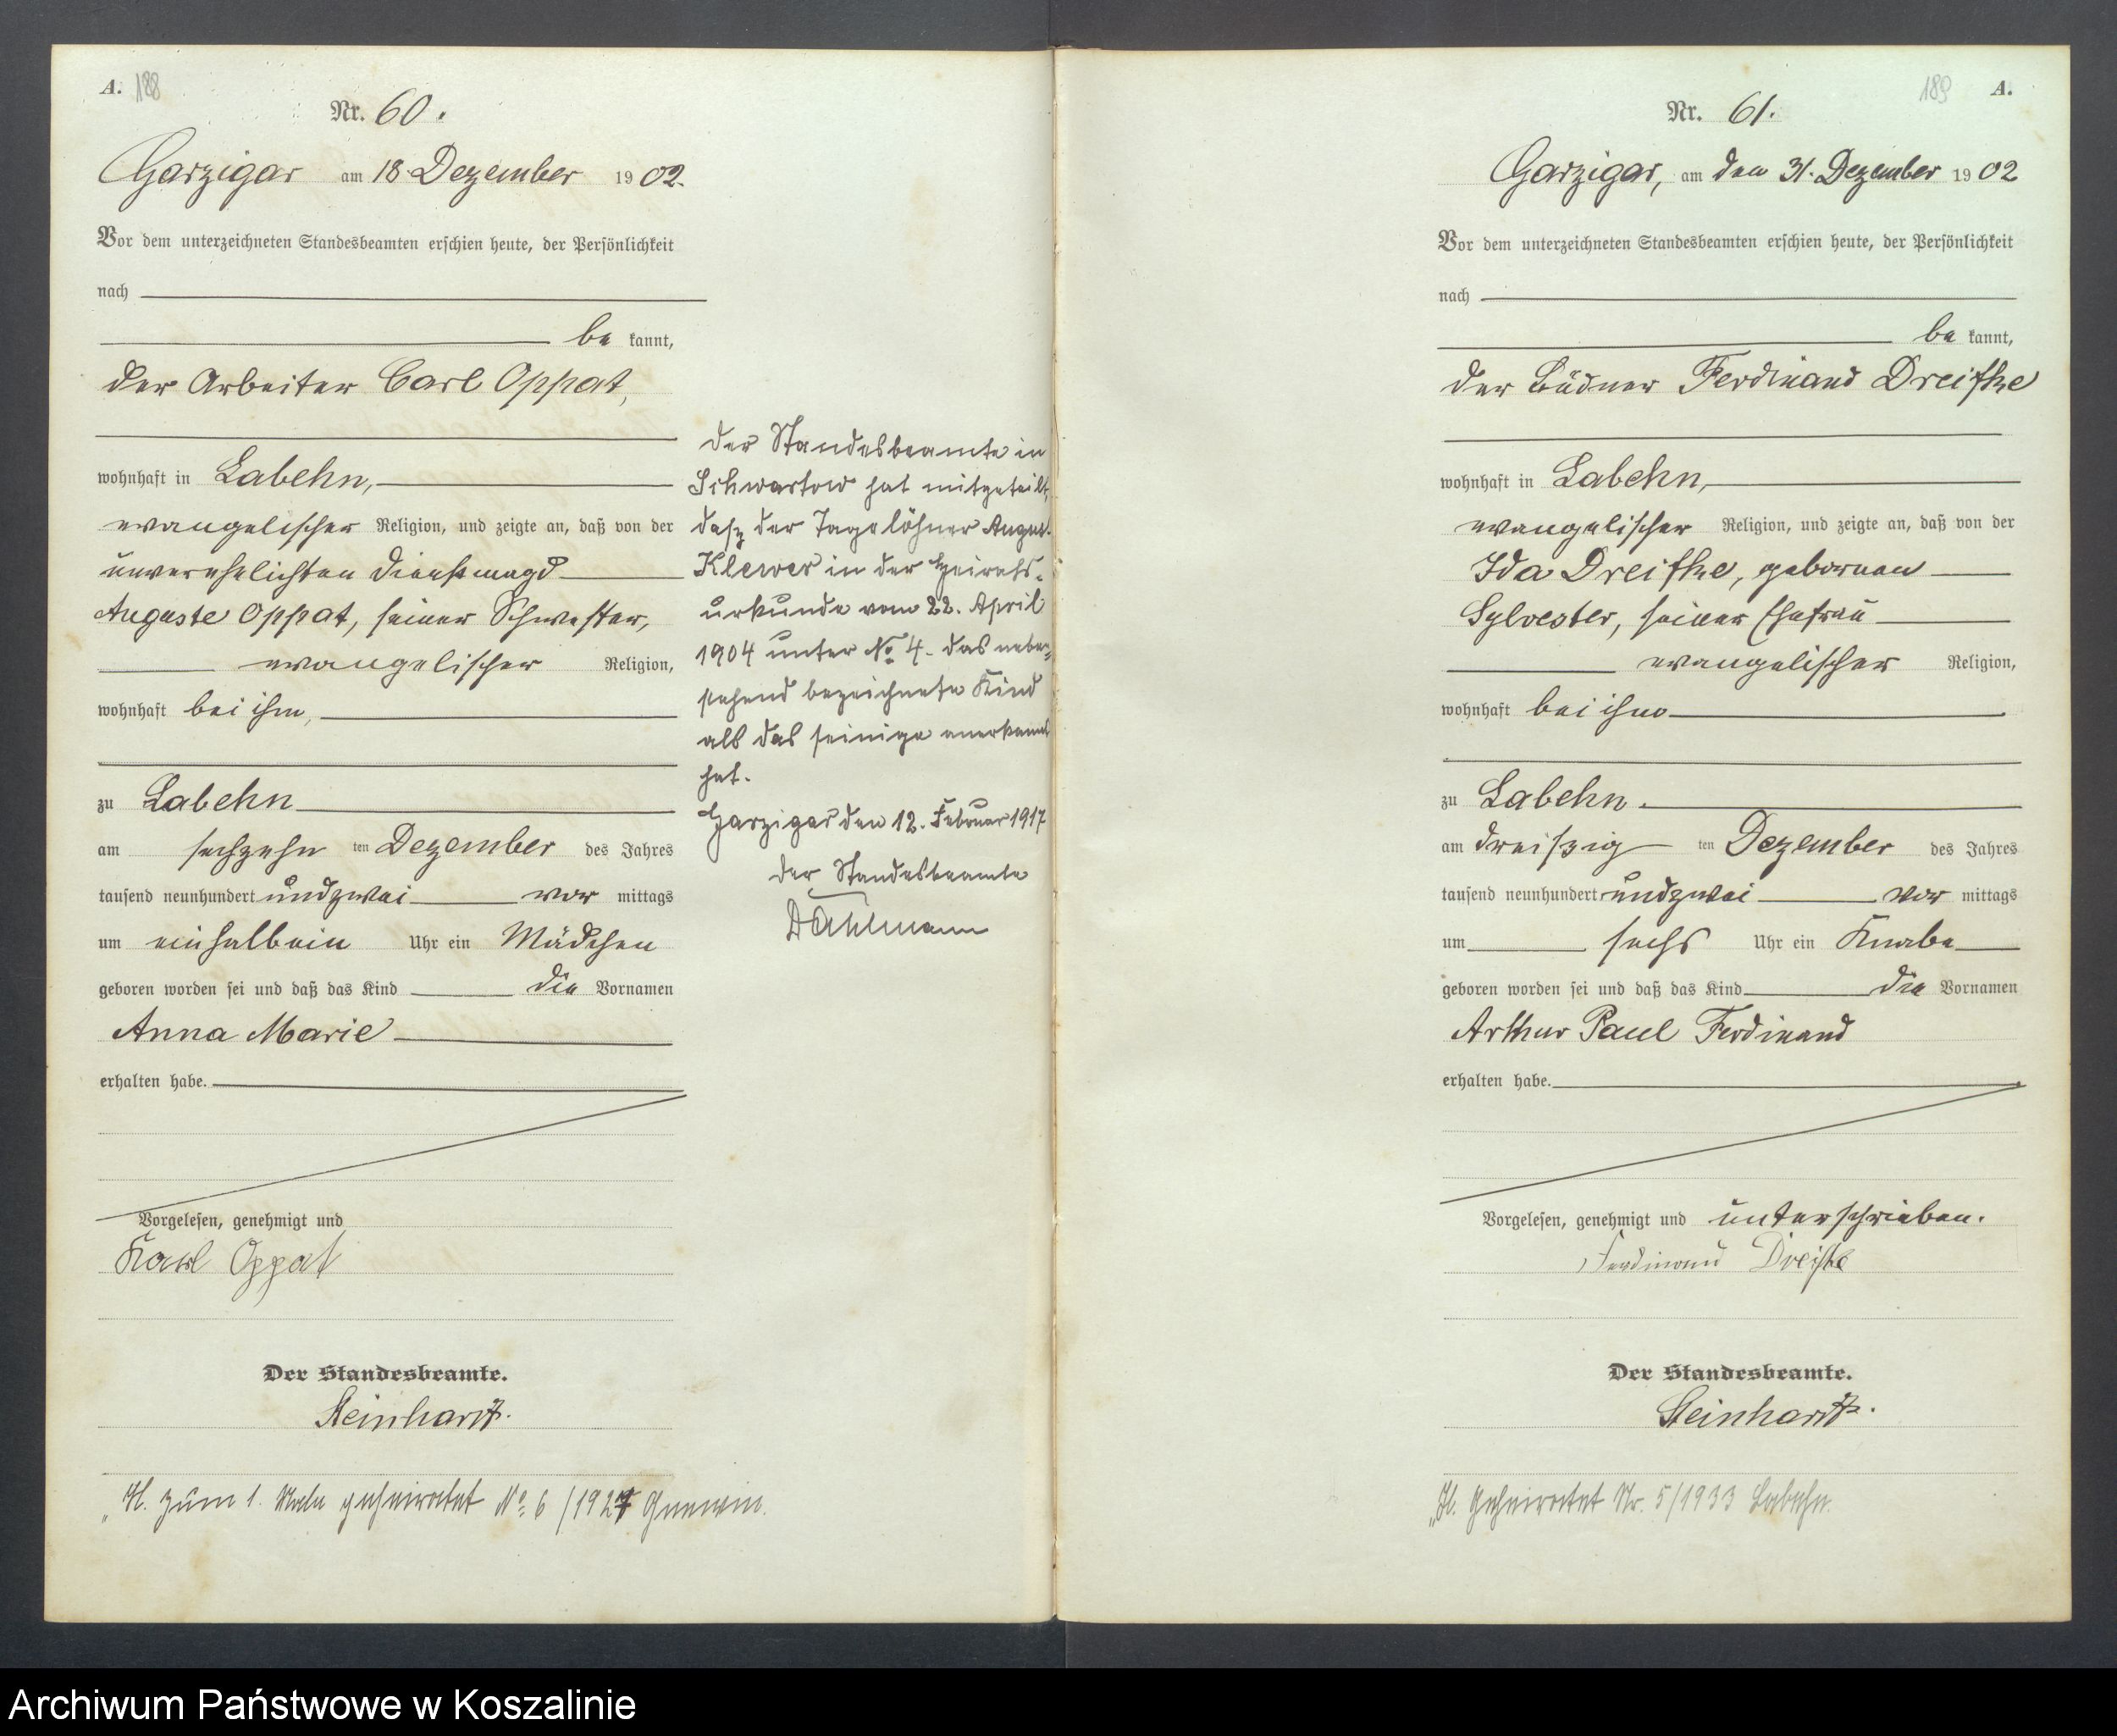 A. 188
Nr. 60.
Garzigar am 18. Dezember 1902.
Vor dem unterzeichneten Standesbeamten erschien heute, der Persönlichkeit
nach
be kannt,
der Arbeiter Carl Oppat,
wohnhaft in Labehn,
evangelischer Religion, und zeigte an, daß von der
unverehelichten Dienstmagd
Auguste Oppat, seiner Schwester,
evangelischer Religion,
wohnhaft bei ihm,
zu Labehn
am sechzehn ten Dezember des Jahres
tausend neunhundert undzwei vor mittags
um einhalbein Uhr ein Mädchen
geboren worden sei und daß das Kind die Vornamen
Anna Marie
erhalten habe.
Vorgelesen, genehmigt und
Karl Oppat
Der Standesbeamte.
Steinhardt.
H. zum 1. Male geheiratet No. 6/1927
der Standesbeamte in
Schwartow hat mitgeteilt,
dasz der Tagelöhner August
Klewer in der Heirats-
urkunde vom 22. April
1904 unter No 4. das neben-
stehend bezeichnete Kind
als das seinige anerkannt
hat.
Garzigar den 12. Februar 1917
der Standesbeamte
Dahlmann
189 A.
Nr. 61.
Garzigar, am den 31. Dezember 1902
Vor dem unterzeichneten Standesbeamten erschien heute, der Persönlichkeit
nach
be kannt,
der Büdner Ferdinand Dreifke
wohnhaft in Labehn,
evangelischer Religion, und zeigte an, daß von der
Ida Dreifke, geborenen
Sylvester, seiner Ehefrau
evangelischer Religion,
wohnhaft bei ihm
zu Labehn.
am dreiszig ten Dezember des Jahres
tausend neunhundert undzwei vor mittags
um sechs Uhr ein Knabe
geboren worden sei und daß das Kind die Vornamen
Arthur Paul Ferdinand
erhalten habe.
Vorgelesen, genehmigt und unterschrieben.
Ferdinand Dreifke
Der Standesbeamte.
Steinhardt.
H. Geheiratet Nr. 5/1933 Labehn.
Archiwum Państwowe w Koszalinie